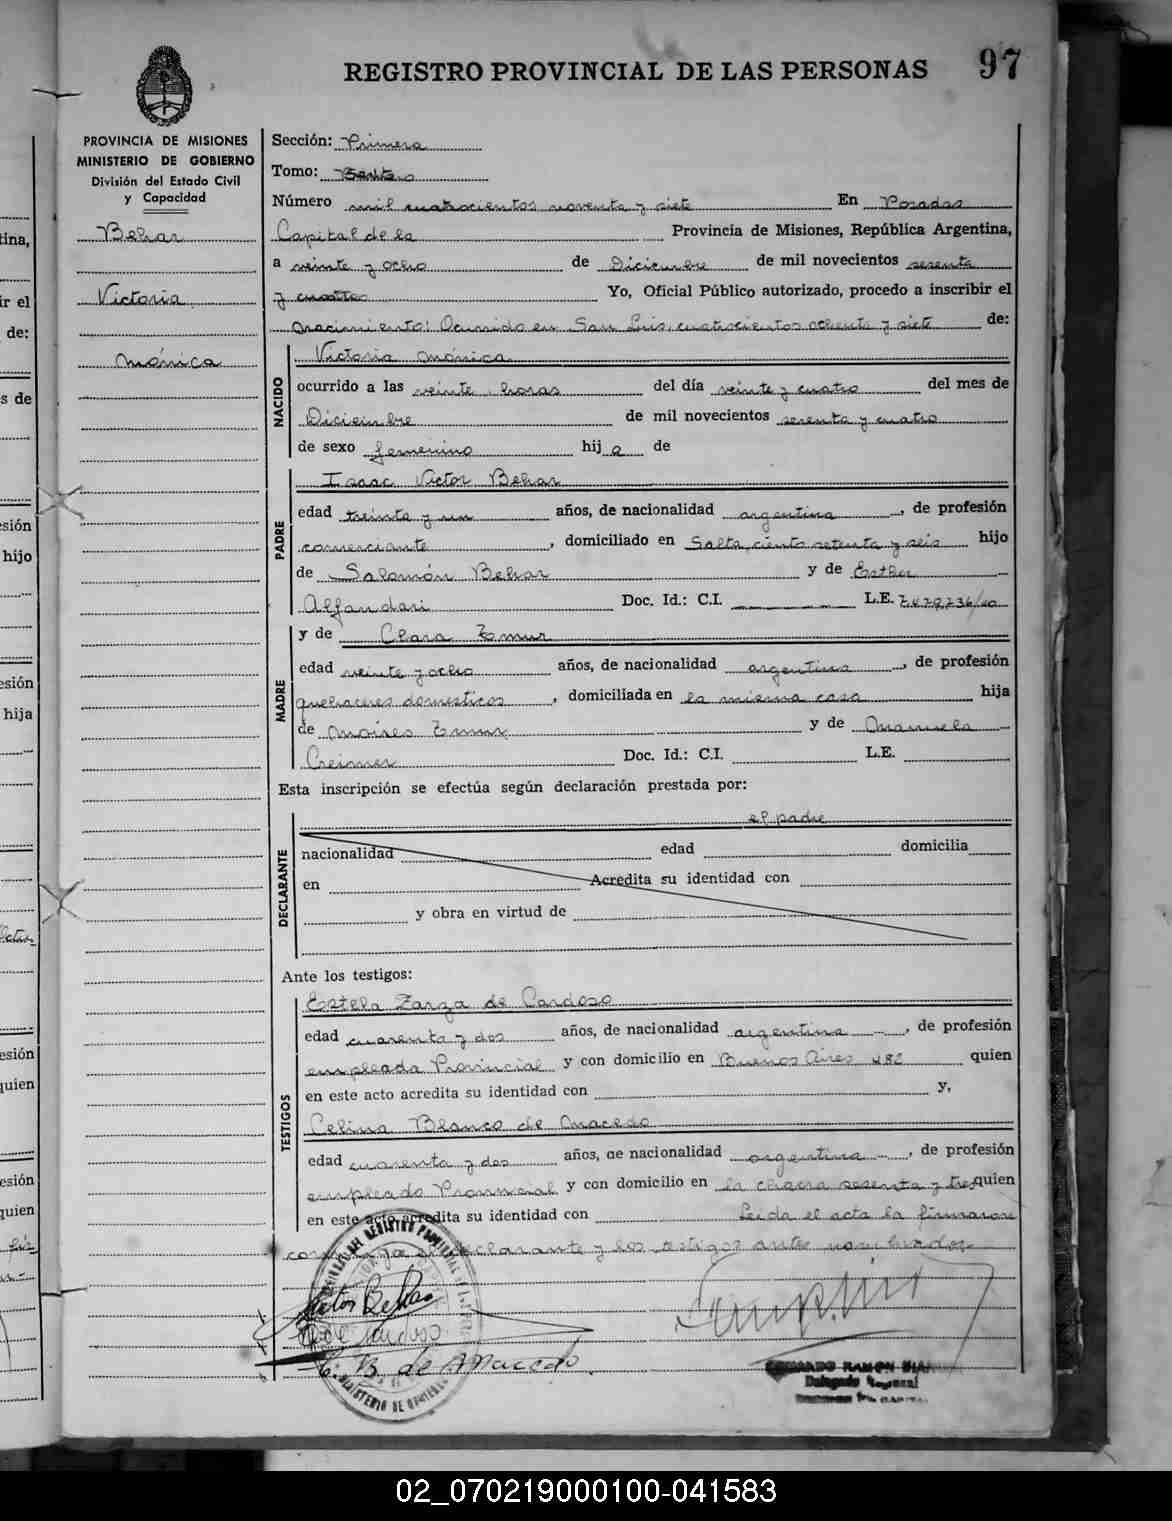 REGISTRO PROVINCIAL DE LAS PERSONAS 97
PROVINCIA DE MISIONES
MINISTERIO DE GOBIERNO
División del Estado Civil
y Capacidad
Behar
Victoria
Mónica
Sección: Primera
Tomo:
Número mil cuatrocientos noventa y siete En Posadas
Capital de la Provincia de Misiones, República Argentina,
a veinte y ocho de Diciembre de mil novecientos sesenta
y cuatro Yo, Oficial Público autorizado, procedo a inscribir el
nacimiento: Ocurrido en San Luis, cuatrocientos ochenta y siete de:
NACIDO
Victoria Mónica
ocurrido a las veinte horas del día veinte y cuatro del mes de
Diciembre de mil novecientos sesenta y cuatro
de sexo femenino hija de
PADRE
Isaac Victor Behar
edad treinta y un años, de nacionalidad argentina, de profesión
comerciante, domiciliado en Salta, ciento setenta y seis hijo
de Salomón Behar y de Esther
Alfandari Doc. Id.: C.I. L.E. 7.479.736/40
MADRE
y de Clara Zmur
edad veinte y ocho años, de nacionalidad argentina, de profesión
quehaceres domesticos, domiciliada en la misma casa hija
de Moises Zmur y de Manuela
Creimer Doc. Id.: C.I. L.E.
Esta inscripción se efectúa según declaración prestada por:
DECLARANTE
el padre
nacionalidad edad domicilia
en Acredita su identidad con
y obra en virtud de
Ante los testigos:
TESTIGOS
Estela Zarza de Cardoso
edad cuarenta y dos años, de nacionalidad argentina, de profesión
empleada Provincial y con domicilio en Buenos Aires 482 quien
en este acto acredita su identidad con y,
Celina Blanco de Macedo
edad cuarenta y dos años, de nacionalidad argentina, de profesión
empleado Provincial y con domicilio en la chacra sesenta y tres quien
en este acto acredita su identidad con Leida el acta la firmaron
conmigo el declarante y los testigos antes nombrados
Victor Behar
de Cardoso
C. B. de Macedo
EDUARDO RAMON
Delegado Regional
02_070219000100-041583